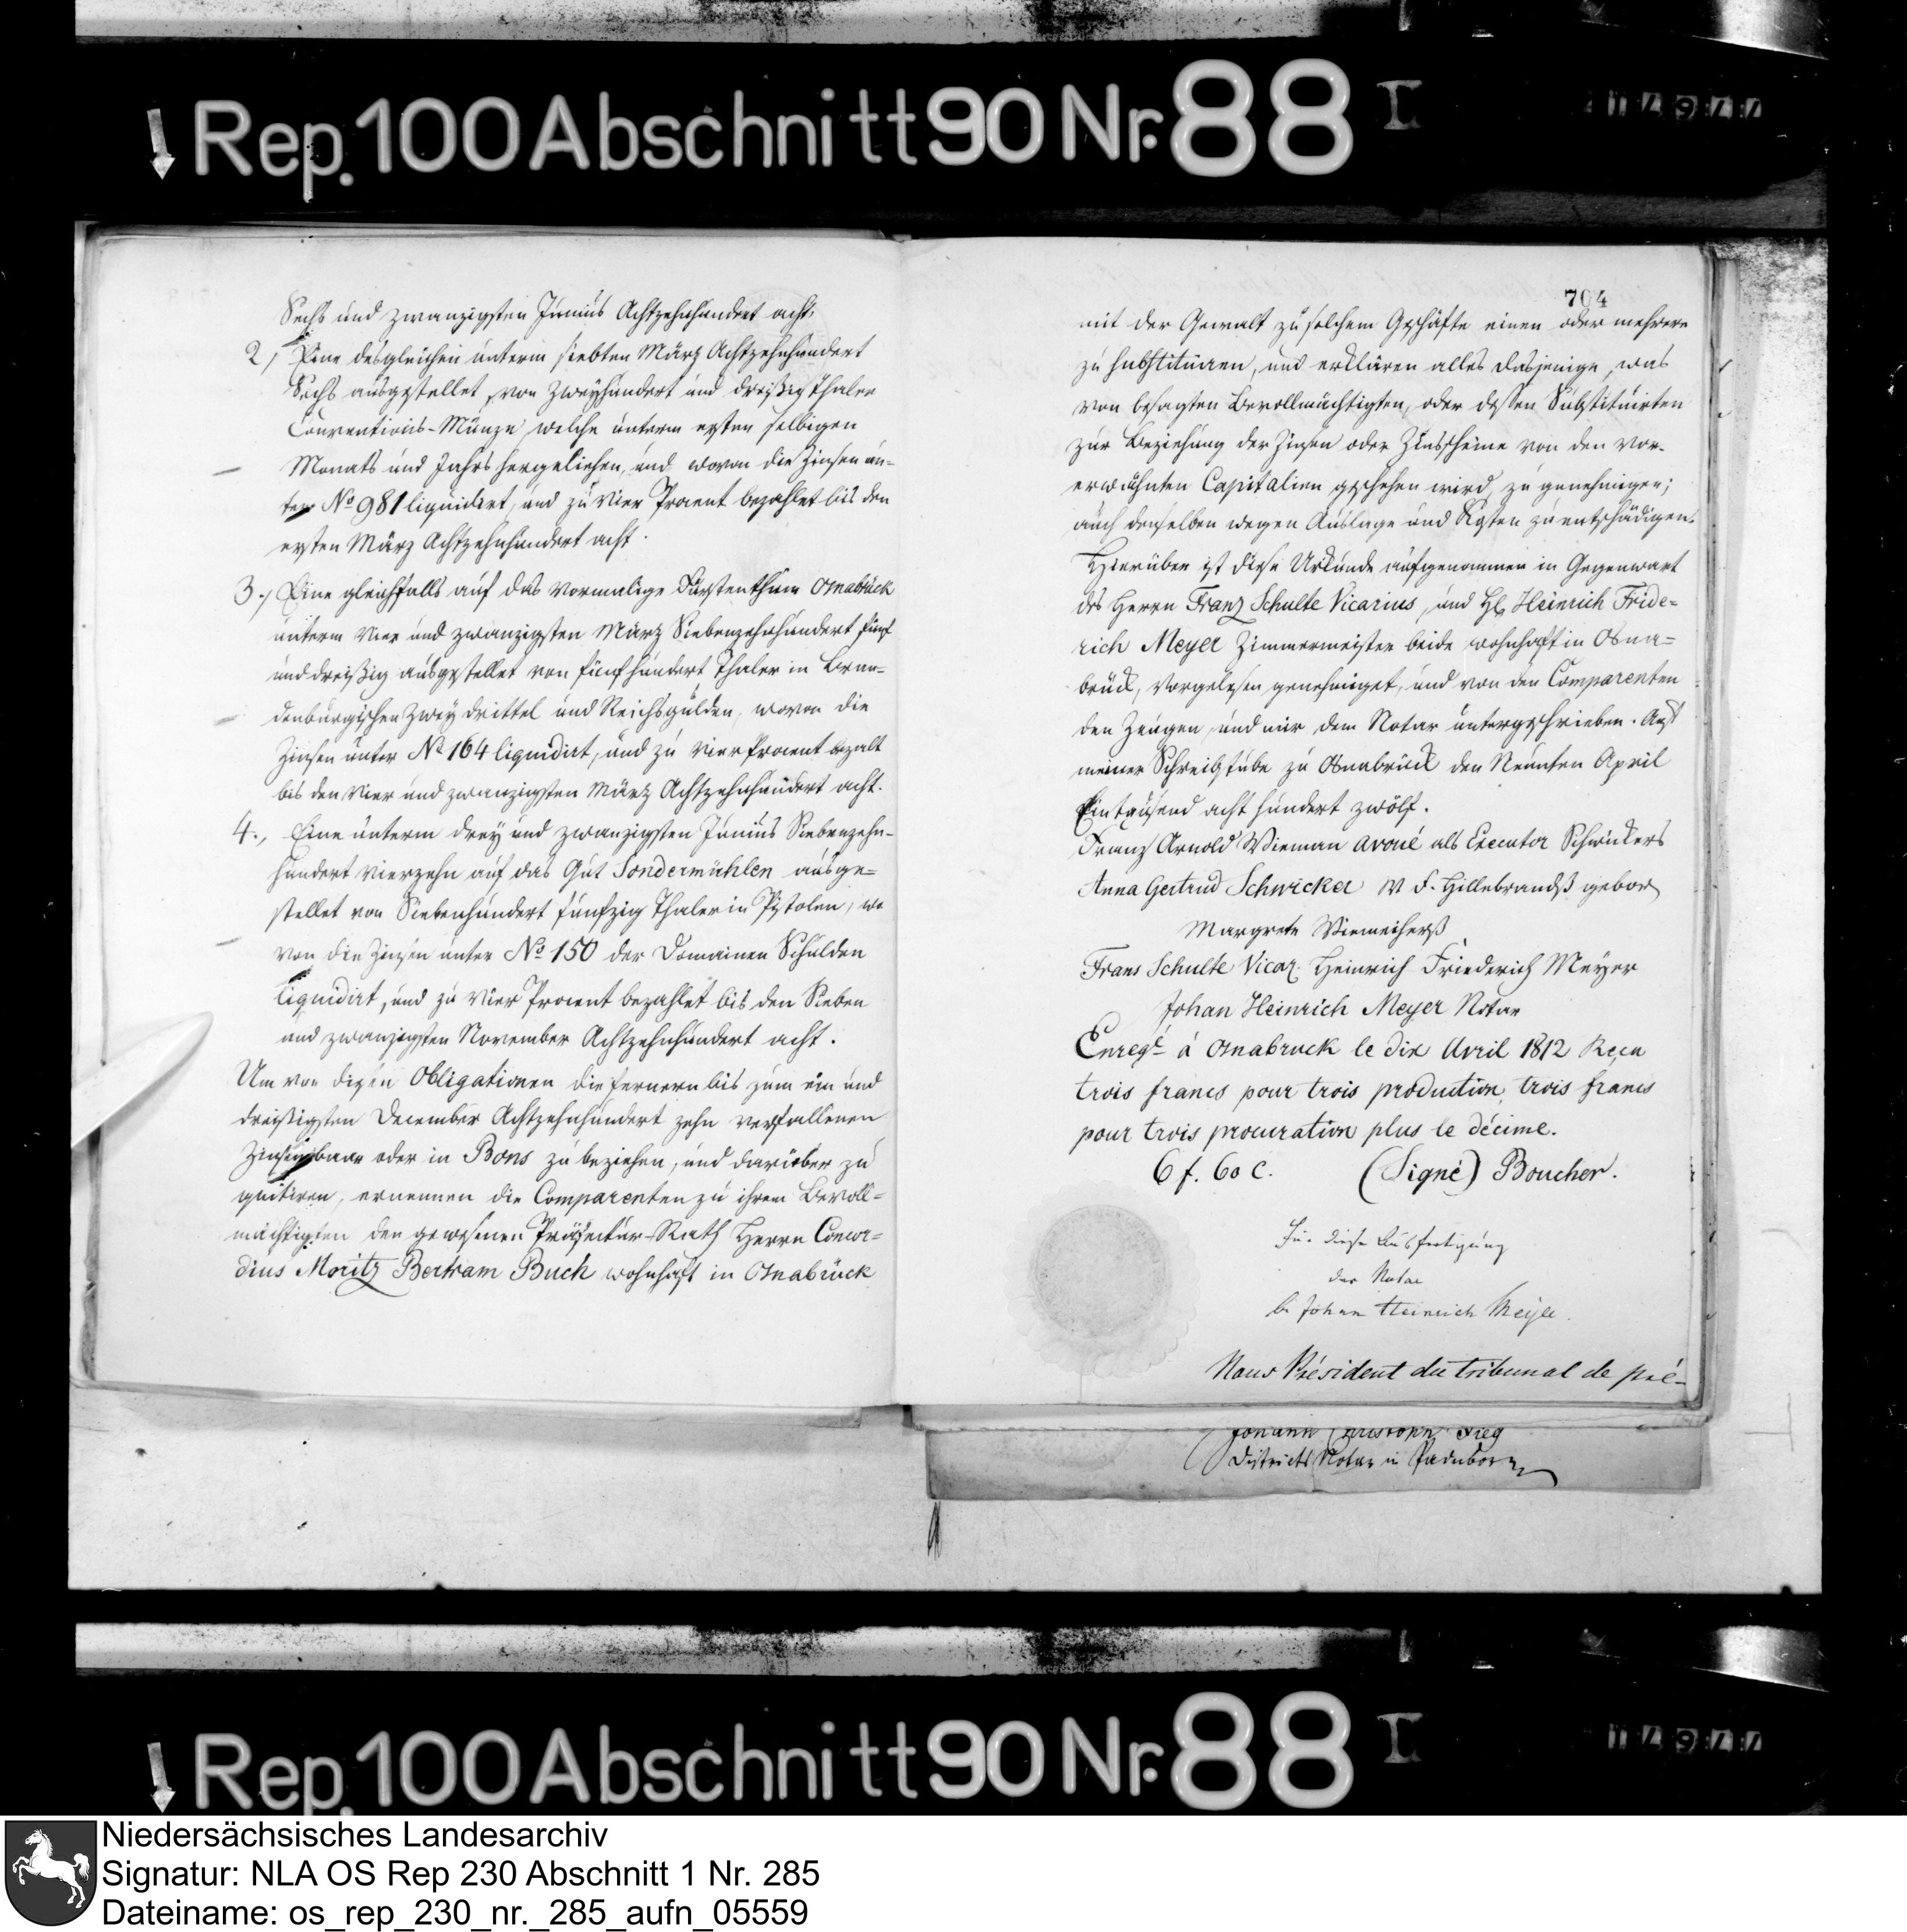 Rep. 100 Abschnitt 90 Nr. 88 I
Sechs und zwanzigsten Junius Achtzehnhundert acht.
2) Eine desgleichen unterm siebten März Achtzehnhundert
Sechs ausgestellet, von Zweyhundert und dreißig Thaler
Conventions-Münze, welche unterm ersten selbigen
Monats und Jahrs hergeliehen, und wovon die Zinsen un-
ter No 981 liquidirt, und zu Vier Procent bezahlet bis den
ersten März Achtzehnhundert acht.
3.) Eine gleichfalls auf das vormalige Fürstenthum Osnabrück
unterm Vier und zwanzigsten März Siebenzehnhundert fünf
und dreißig ausgestellet von fünfhundert Thaler in Bran-
denburgischen Zwey drittel und Reichsgulden, wovon die
Zinsen unter No 164 liquidirt, und zu Vier Procent bezalt
bis den Vier und zwanzigsten März Achtzehnhundert acht.
4., Eine unterm drey und zwanzigsten Junius Siebenzehn-
hundert Vierzehn auf das Gut Sondermühlen ausge=
stellet von Siebenhundert fünfzig Thaler in Pistolen, wo
von die Zinsen unter No 150 der Domainen Schulden
liquidirt, und zu Vier Procent bezahlet bis den Sieben
und zwanzigsten November Achtzehnhundert acht.
Um von diesen Obligationen die fernern bis zum ein und
dreißigsten December Achtzehnhundert zehn verfallenen
Zinsen baar oder in Bons zu beziehen, und darüber zu
quitiren, ernennen die Comparenten zu ihrem Bevoll=
mächtigten den gewesenen Präfectur-Rath Herrn Concor=
dius Moritz Bertram Buch wohnhaft in Osnabrück
704
mit der Gewalt zu solchem Geschäfte einen oder mehrere
zu substituiren, und erklären alles dasjenige, was
von besagten Bevollmächtigten, oder dessen Substituirten
zur Beziehung der Zinsen oder Zinsscheine von den vor-
erwähnten Capitalien geschehen wird, zu genehmigen;
auch denselben wegen Auslage und Kosten zu entschädigen.
Hierüber ist diese Urkunde aufgenommen in Gegenwart
des Herrn Franz Schulte Vicarius, und H. Heinrich Fride=
rich Meyer Zimmermeister beide wohnhaft in Osna=
brück, vorgelesen genehmiget, und von den Comparenten
den Zeugen und mir dem Notar unterschrieben. Auf
meiner Schreibstube zu Osnabrück den Neunten April
Eintausend acht hundert zwölf.
Franz Arnold Wieman avoué als Executor Schwickers
Anna Gertrud Schwicker W F. Hillebrandß geborn
Margrete Wiemeiherß
Frans Schulte Vicar. Heinrich Friederich Meyer
Johan Heinrich Meyer Notar
Enregé à Osnabruck le dix Avril 1812 Recu
trois francs pour trois production, trois francs
pour trois procuration plus le décime.
6 f. 60 c. (Signé) Boucher.
Für diese Ausfertigung
der Notar
Johan Heinrich Meyer
Nous Président du tribunal de pré-
Johann Christoph
Districts Notar in Paderborn
Rep. 100 Abschnitt 90 Nr. 88 I
Niedersächsisches Landesarchiv
Signatur: NLA OS Rep 230 Abschnitt 1 Nr. 285
Dateiname: os_rep_230_nr._285_aufn_05559